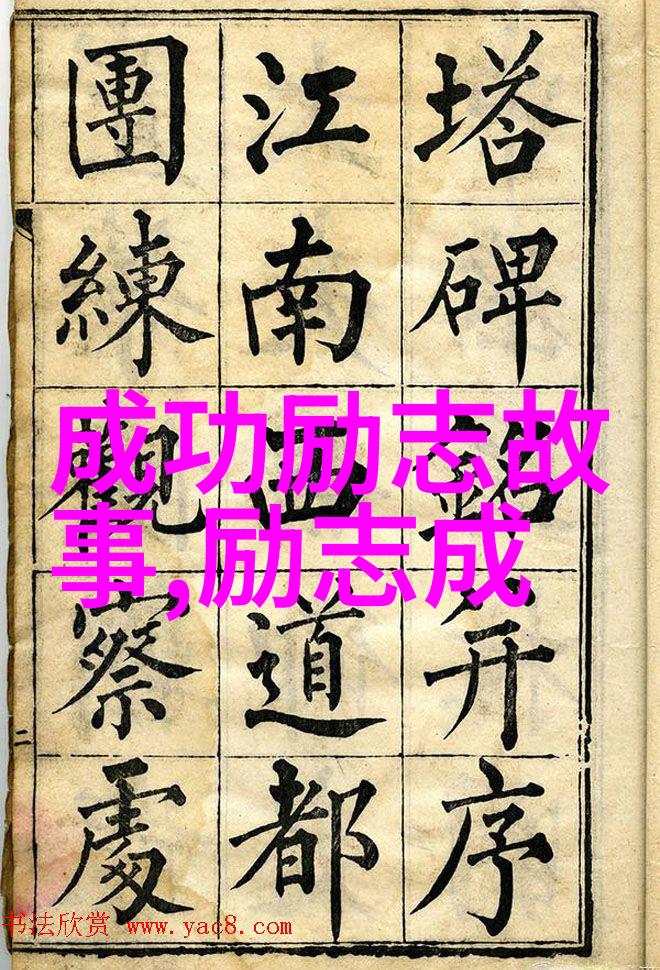 塔碑銘并序
江南西道都
團練觀察處
二
成功励志故
事,励志成
书法欣赏 www.yac8.com